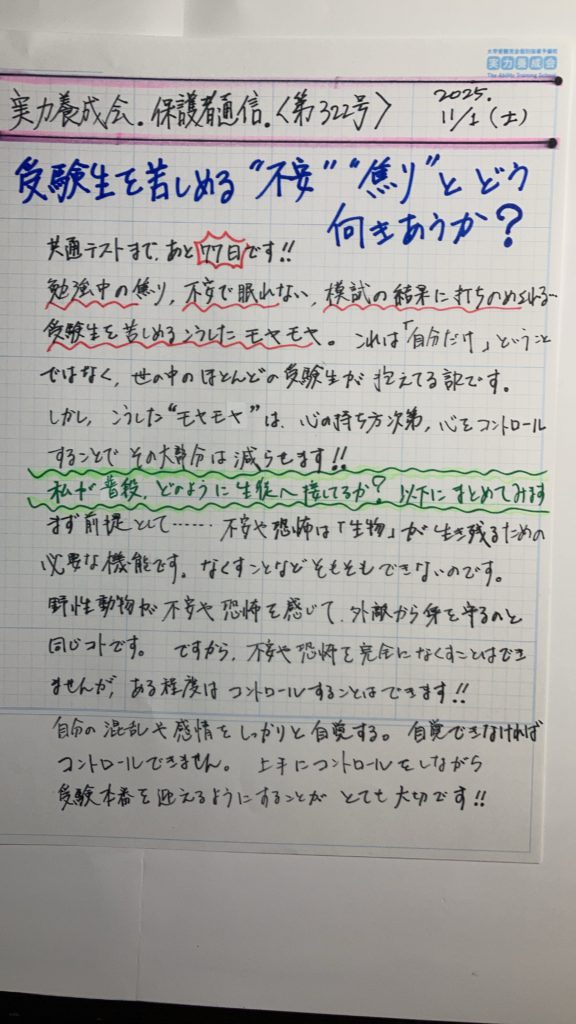 大学受験完全個別指導予備校
実力養成会
The Ability Training School
実力養成会.保護者通信.〈第322号〉
2025.
11/1(土)
受験生を苦しめる“不安”“焦り”とどう
向きあうか？
共通テストまで、あと77日です!!
勉強中の焦り、不安で眠れない、模試の結果に打ちのめされる…
受験生を苦しめるこうしたモヤモヤ。これは「自分だけ」ということ
ではなく、世の中のほとんどの受験生が抱えてる訳です。
しかし、こうした“モヤモヤ”は、心の持ち方次第、心をコントロール
することでその大部分は減らせます!!
私が普段、どのように生徒へ接してるか？以下にまとめてみます
まず前提として……不安や恐怖は「生物」が生き残るための
必要な機能です。なくすことなどそもそもできないのです。
野性動物が不安や恐怖を感じて、外敵から身を守るのと
同じコトです。ですから、不安や恐怖を完全になくすことはでき
ませんが、ある程度はコントロールすることはできます!!
自分の混乱や感情をしっかりと自覚する。自覚できなければ
コントロールできません。上手にコントロールをしながら
受験本番を迎えるようにすることがとても大切です!!